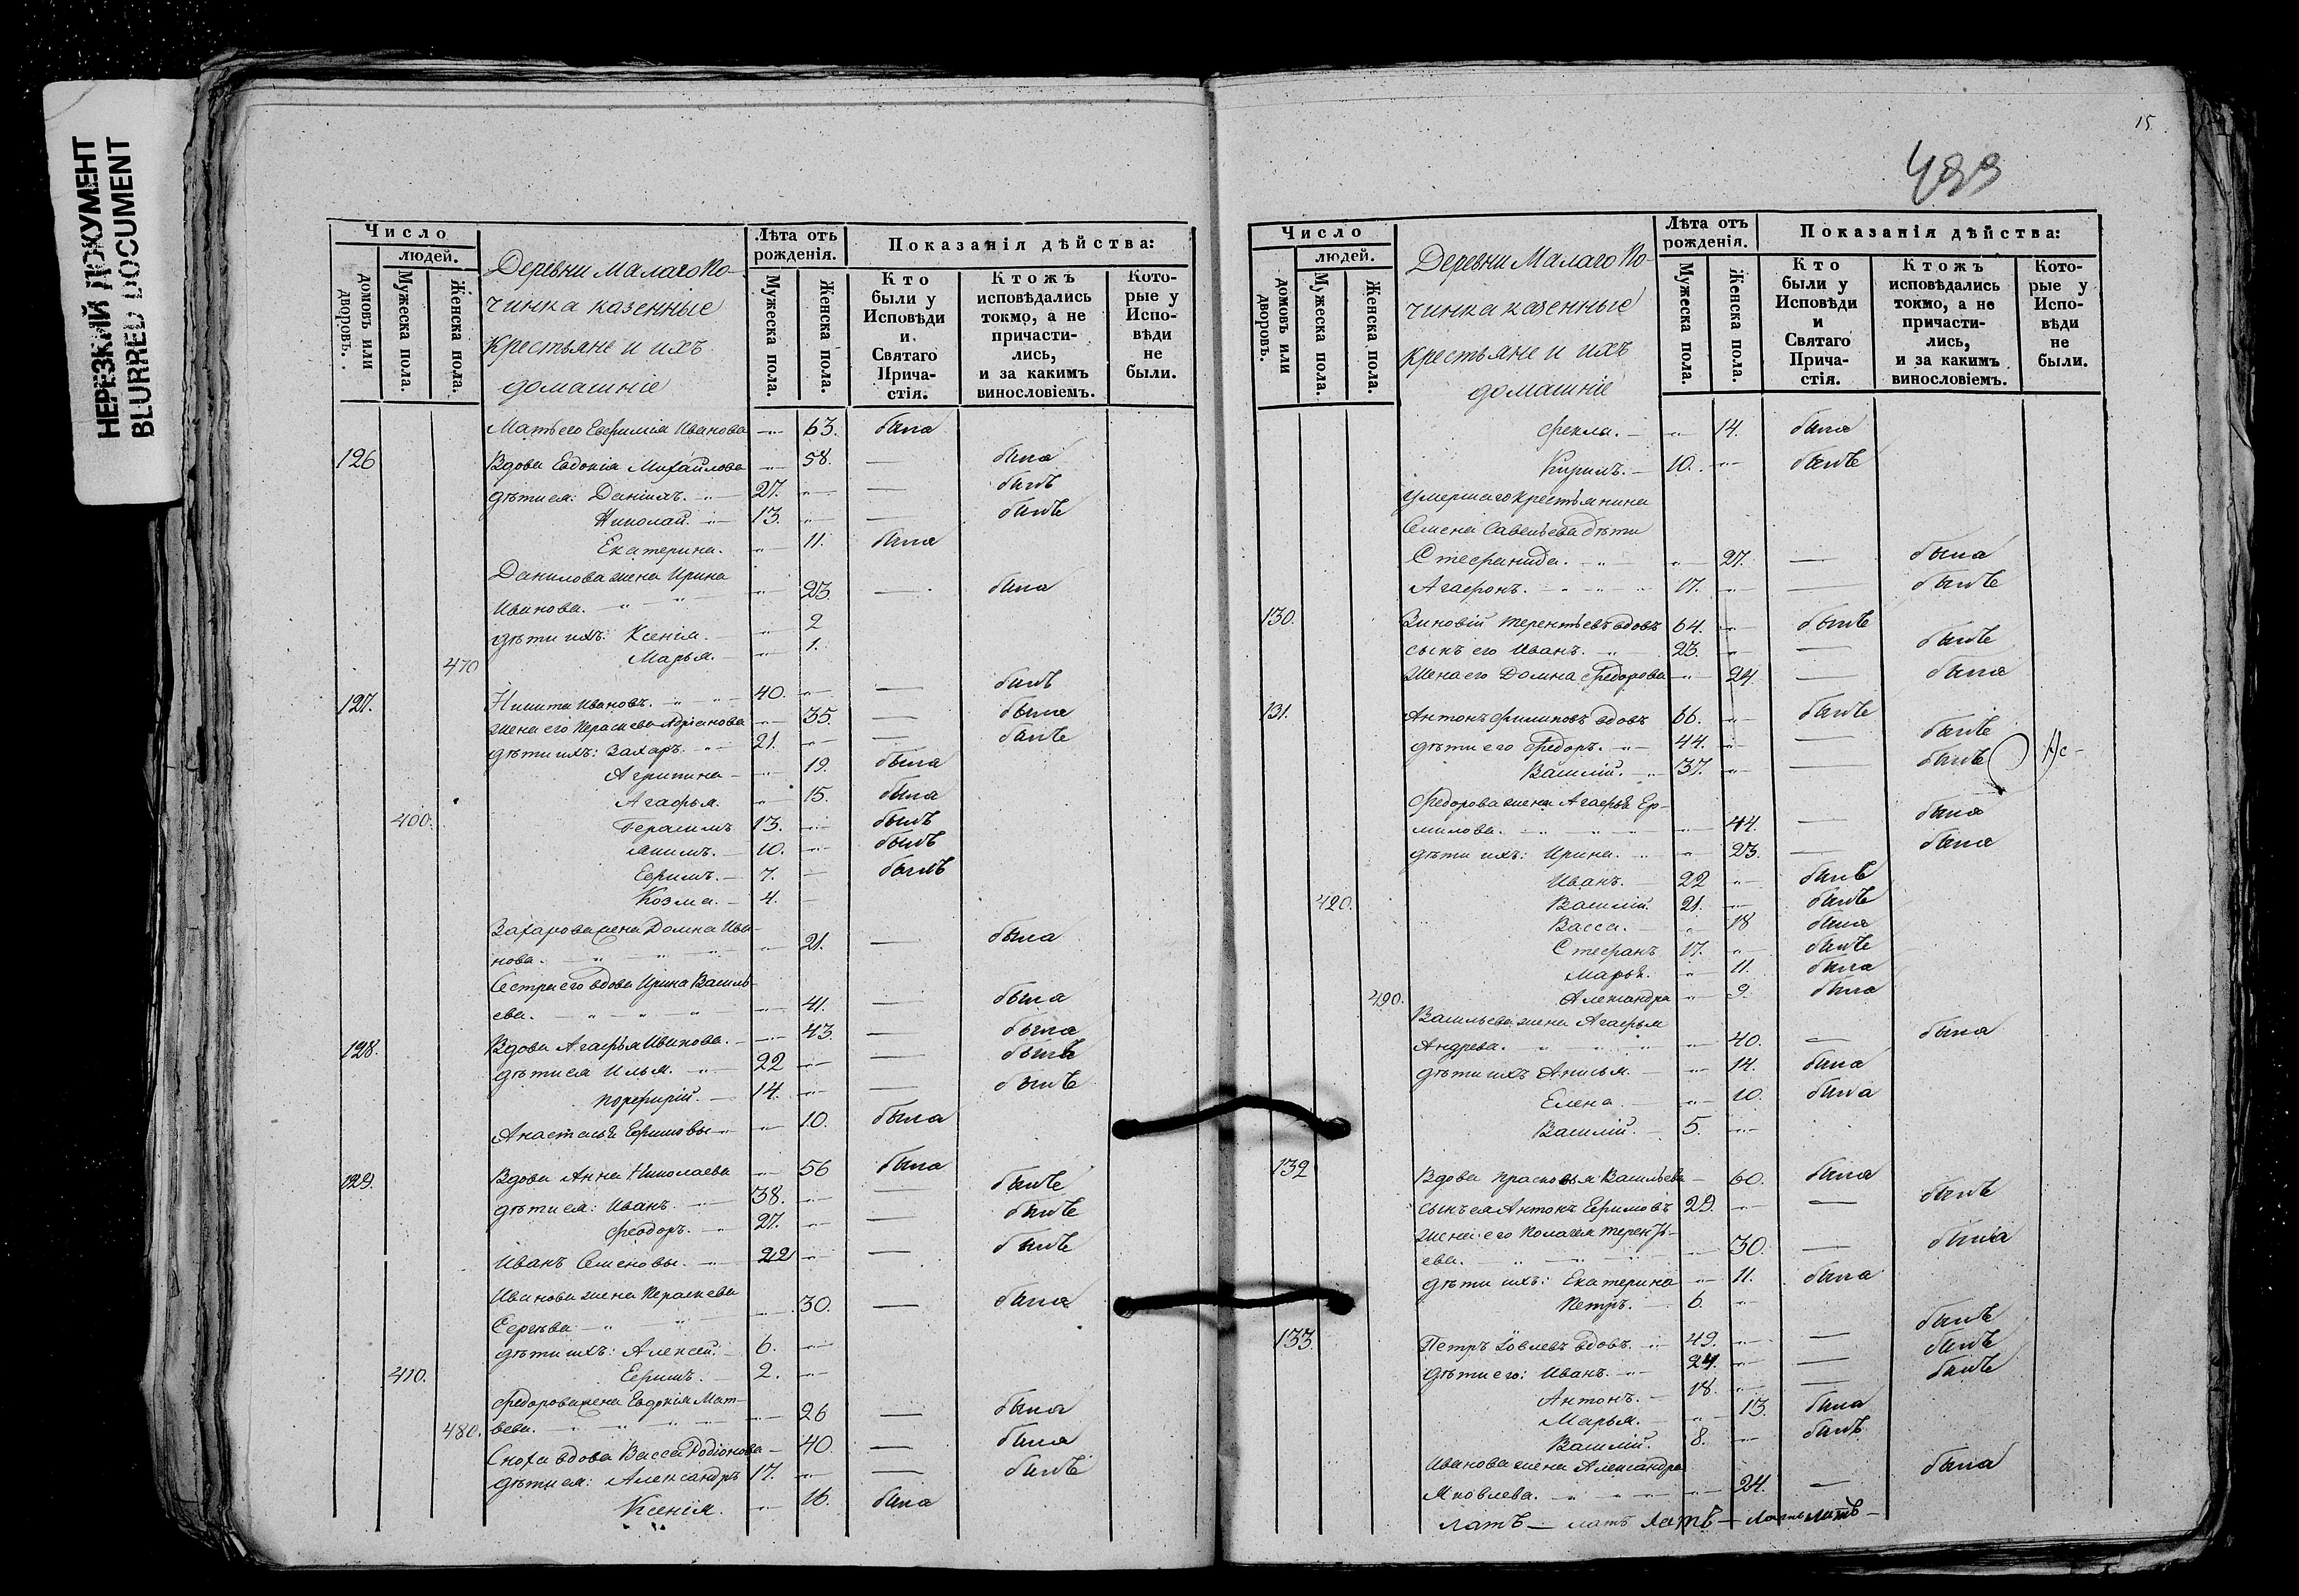 НЕРЕЗКИЙ ДОКУМЕНТ
BLURRED DOCUMENT
Число
людей.
домовъ или дворовъ.
Мужеска пола.
Женска пола.
Деревни Малаго По-
чинка казенные
крестьяне и ихъ
домашніе
Лѣта отъ рожденія.
Мужеска пола.
Женска пола.
Показанія дѣйства:
Кто были у Исповѣди и Святаго Прича-стія.
Ктожъ исповѣдались токмо, а не причасти-лись, и за какимъ винословіемъ.
Кото-рые у Испо-вѣди не были.
Мать его Евфимія Иванова — 63. была
126 Вдова Евдокія Михайлова — 58. — была
дѣти ея: Даніилъ. — 27. — — былъ
Николай. — 13. — — былъ
Екатерина. — 11. была
Данилова жена Ирина
Иванова. — 23 — была
дѣти ихъ: Ксенія. — 2
470 Марья. — 1.
127. Никита Ивановъ. — 40. — — былъ
жена его Параскева Адріанова — 35. — была
дѣти ихъ: Захаръ. — 21. — — былъ
Агрипина — 19. была
Агафья. — 15. была
400. Герасимъ 13. — былъ
Акимъ. — 10. — былъ
Ефимъ. — 7. — былъ
Козма. — 4. —
Захарова жена Домна Ива-
нова. — 21. — была
Сестра его вдова Ирина Василь-
ева. — 41. — была
128. Вдова Агафья Иванова. — 43. — была
дѣти ея Илья. — 22 — — былъ
Порфирій. — 14. — — былъ
Анастасья Ефимовы — 10. была
129. Вдова Анна Николаева — 56 была
дѣти ея: Иванъ. — 38. — — былъ
Феодоръ. — 27. — — былъ
Иванъ Семеновы. — 22 — — былъ
Иванова жена Параскева
Сергѣева — 30. — была
дѣти ихъ: Алексей. — 6. —
410. Ефимъ. — 2. —
Федорова жена Евдокія Мат-
480. веева. — 26 — была
Сноха вдова Васса Родіонова — 40. — была
дѣти ея: Александръ 17. — — былъ
Ксенія. — 16. была
15.
499
Число
людей.
домовъ или дворовъ.
Мужеска пола.
Женска пола.
Деревни Малаго По-
чинка казенные
крестьяне и ихъ
домашніе
Лѣта отъ рожденія.
Мужеска пола.
Женска пола.
Показанія дѣйства:
Кто были у Исповѣди и Святаго Прича-стія.
Ктожъ исповѣдались токмо, а не причасти-лись, и за какимъ винословіемъ.
Кото-рые у Испо-вѣди не были.
Фекла. — 14. была
Кирилъ. — 10. — былъ
умершаго крестьянина
Семена Савельева дѣти
Стефанида. — 27. — была
Агафонъ. — 17. — — былъ
130. Зиновій Терентьевъ вдовъ 64. — былъ
сынъ его Иванъ. — 23. — — былъ
жена его Домна Федорова — 24. — была
131. Антонъ Филиповъ вдовъ 66. — былъ
дѣти его Федоръ. — 44. — — былъ
Василій. — 37. — — былъ
Федорова жена Агафья Ер-
милова. — 44. — была
дѣти ихъ: Ирина. — 23. — была
Иванъ. — 22 — былъ
420. Василій. 21. — былъ
Васса. — 18 была
Стефанъ 17. — былъ
Марья. — 11. была
490. Александра — 9. была
Васильева жена Агафья
Андреева. — 40. — была
дѣти ихъ Анисья. — 14. была
Елена — 10. была
Василій. — 5. —
132 Вдова Прасковья Васильева — 60. была
сынъ ея Антонъ Ефимовъ 29. — — былъ
жена его Полагея Терентъ-
ева. — 30. — была
дѣти ихъ: Екатерина — 11. была
Петръ. — 6. —
133. Петръ Іовлевъ вдовъ. — 49. — — былъ
дѣти его: Иванъ. — 24. — — былъ
Антонъ. — 18. — — былъ
Марья. — 13. была
Василій. 8. — былъ
Иванова жена Александра
Яковлева. — 24. — была